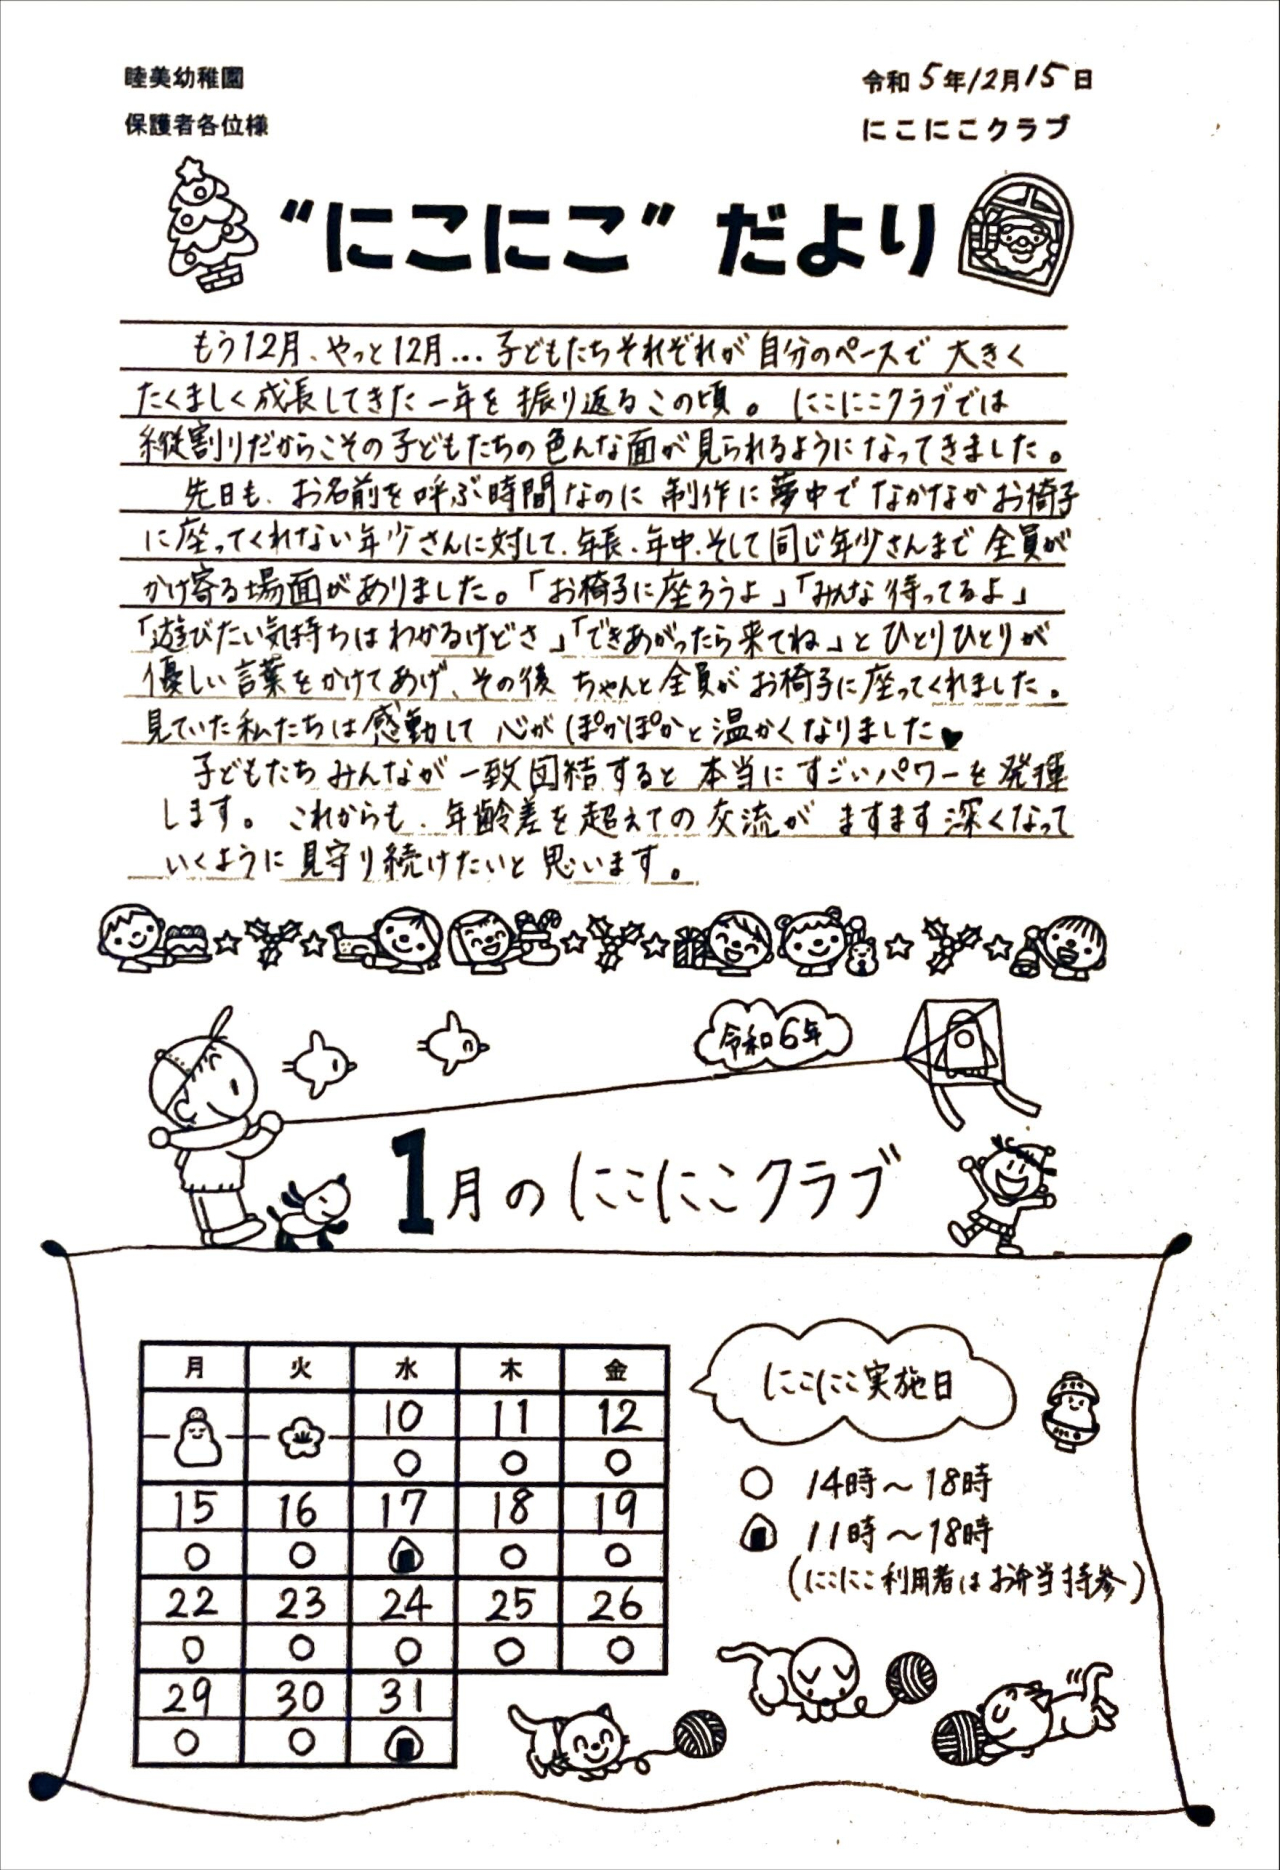 睦美幼稚園
保護者各位様
令和5年12月15日
にこにこクラブ
“にこにこ”だより
もう12月、やっと12月…子どもたちそれぞれが自分のペースで大きく
たくましく成長してきた一年を振り返るこの頃。にこにこクラブでは
縦割りだからこその子どもたちの色んな面が見られるようになってきました。
先日も、お名前を呼ぶ時間なのに制作に夢中でなかなかお椅子
に座ってくれない年少さんに対して、年長、年中、そして同じ年少さんまで全員が
かけ寄る場面がありました。「お椅子に座ろうよ」「みんな待ってるよ」
「遊びたい気持ちはわかるけどさ」「できあがったら来てね」とひとりひとりが
優しい言葉をかけてあげ、その後ちゃんと全員がお椅子に座ってくれました。
見ていた私たちは感動して心がぽかぽかと温かくなりました♥
子どもたちみんなが一致団結するとと本当にすごいパワーを発揮
します。これからも、年齢差を超えての交流がますます深くなって
いくように見守り続けたいと思います。
令和6年
1月のにこにこクラブ
月 火 水 木 金
10 11 12
○ ○ ○
15 16 17 18 19
○ ○ 🍙 ○ ○
22 23 24 25 26
○ ○ ○ ○ ○
29 30 31
○ ○ 🍙
にこにこ実施日
○ 14時～18時
🍙 11時～18時
(にこにこ利用者はお弁当持参)